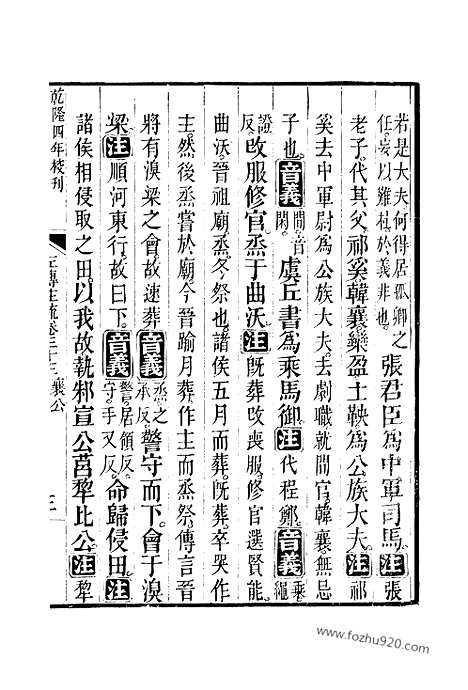 若是大夫何得居孤卿之
任。妄以難杜於義非也。
張君臣爲中軍司馬。注張
老子。代其父。祁奚韓襄欒盈士鞅爲公族大夫。注祁
奚去中軍尉爲公族大夫。去劇職就閒官。韓襄。無忌
子也。音義閒音閑。虞丘書爲乘馬御。注代程鄭。音義乘繩
證反。改服修官烝于曲沃。注旣葬。改喪服。修官選賢能。
曲沃。晉祖廟。烝。冬祭也。諸侯五月而葬。旣葬。卒哭作
主。然後烝嘗於廟。今晉踰月葬。作主而烝祭。傳言晉
將有溴梁之會。故速葬。音義烝之承反。警守而下。會于溴
梁。注順河東行。故曰下。音義警居領反。守手又反。命歸侵田。注
諸侯相侵取之田。以我故執邾宣公莒犂比公。注犂
乾隆四年校刊
左傳注疏卷三十三 襄公
三
www.fozhu920.com